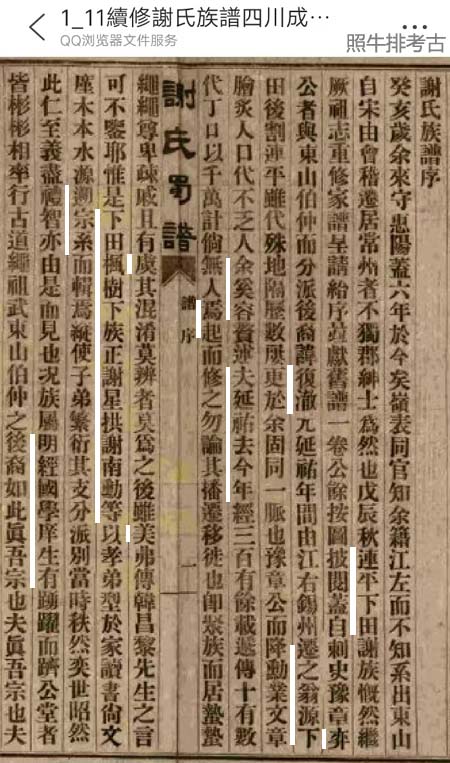 1_11續修謝氏族譜四川成…
QQ浏览器文件服务
照牛排考古
謝氏族譜序
癸亥歲余來守惠陽蓋六年於今矣嶺表同官知余籍江左而不知系出東山
自宋由會稽遷居常州者不獨郡紳士為然也戊辰秋連平下田謝族慨然繼
厥祖志重修家譜呈請給序竝獻舊譜一卷公餘按圖披閱蓋自剌史豫章弃
公者與東山伯仲而分派後裔諱復澈元延祐年間由江右錫州遷之翁源下
田後割連平雖代殊地隔歷數更於余固同一脈也豫章公而降勳業文章
膾炙人口代不乏人余奚容贅夫延祐去今年經三百有餘載遞傳十有數
代丁口以千萬計倘無人焉起而修之勿論其播遷移徙也卽聚族而居蟄蟄
謝氏蜀譜
譜序
一
繩繩尊卑疎戚且有虞其混淆莫辨者莫為之後雖美弗傳韓昌黎先生之言
可不鑒耶惟是下田楓樹下族正謝星拱謝南動等以孝弟型於家讀書尚文
座木本水源遡宗系而輯焉縱使子弟繁衍其支分派別當時秩然奕世昭然
此仁至義盡禮智亦由是而見也况族屬明經國學庠生有踴躍而躋公堂者
皆彬彬相率行古道繩祖武東山伯仲之後裔如此眞吾宗也夫眞吾宗也夫